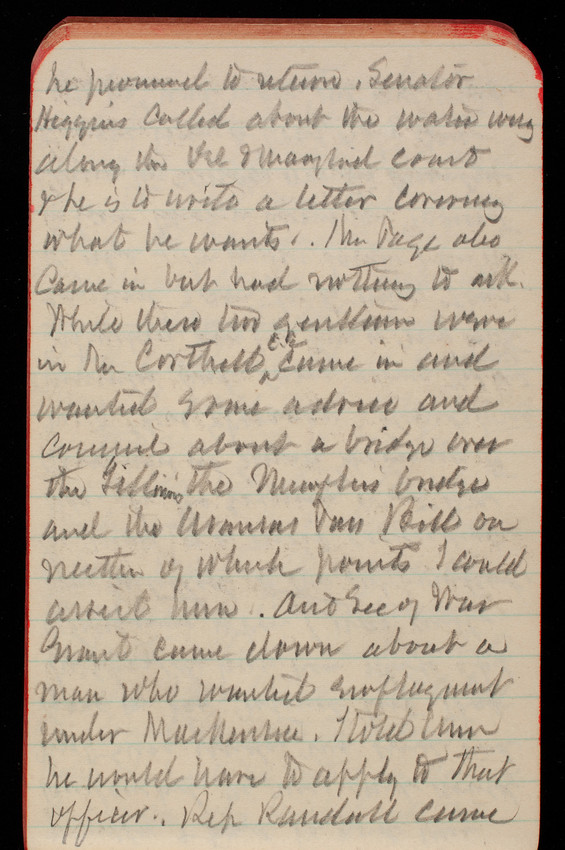 he promised to return. Senator
Higgins called about the water way
along the Del & Maryland coast
& he is to write a letter covering
what he wants. Mr Page also
came in but had nothing to ask.
While these two gentlemen were
in Mr Corthell E.L. came in and
wanted some advice and
council about a bridge over
the the Memphis bridge
and the Arkansas Pass Bill on
neither of which points I could
assist him. Asst Sec of War
Grant came down about a
man who wanted employment
under Mackenzie. I told him
he would have to apply to that
officer. Rep Randall came